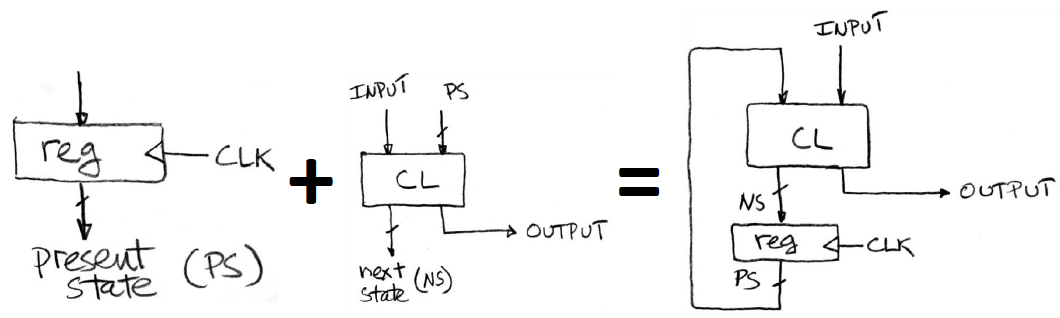 reg
CLK
present
state (PS)
+
INPUT PS
CL
OUTPUT
next
state (NS)
=
INPUT
CL
NS
OUTPUT
reg
CLK
PS